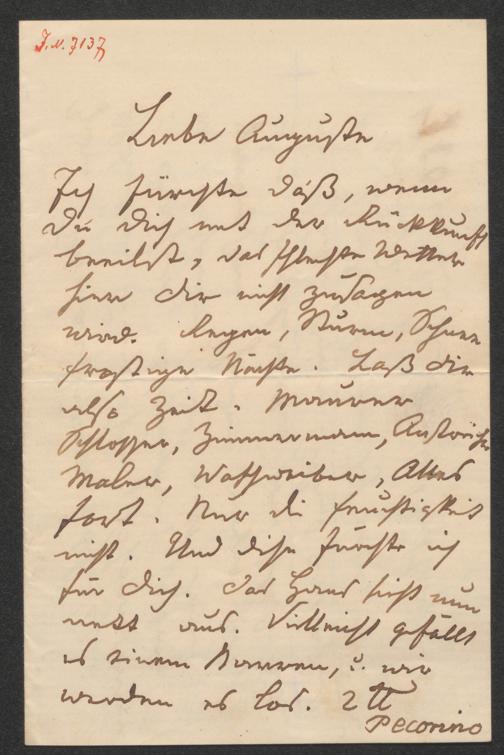 I.N. 3137
Liebe Auguste
Ich fürchte daß, wenn
Du dich mit der Rückkunft
beeilst, das schlechte Wetter
hier dir nicht zusagen
wird. Regen, Sturm, Schnee
frostige Nächte. Laß dir
also Zeit. Maurer
Schlosser, Zimmermann, Anstreicher
Maler, Waschweiber, Alles
fort. Nur die feuchtigkeit
nicht. Und diese fürchte ich
für dich. Das Haus sieht nun
nett aus. Vielleicht gefällt
es einem Narren, u. wir
werden es los. 2 ℔
Pecorino